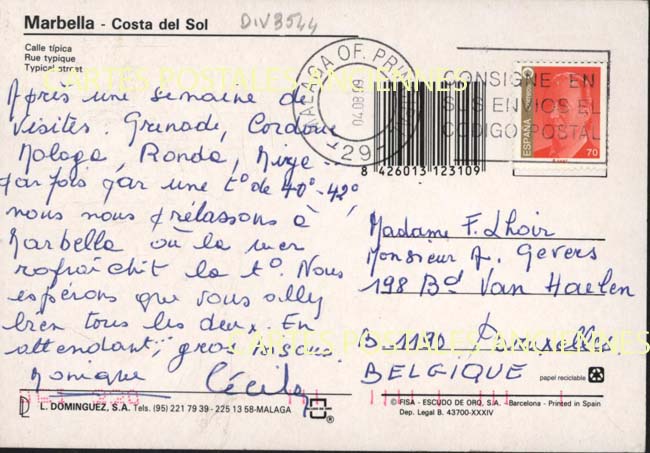 Marbella - Costa del Sol
DIV3544
Calle típica
Rue typique
Typical street
CARTES POSTALES ANCIENNES
MALAGA OF. PRI
04.08.9
-29-
CONSIGNE EN
SUS ENVIOS EL
CODIGO POSTAL
ESPAÑA
70
8 426013 123109
Après une semaine de
visites. Grenade, Cordoue
Malaga, Ronda, Mije
parfois par une t° de 40°-42°,
nous nous prélassons à
Marbella où la mer
rafraîchit la t°. Nous
espérons que vous ally
bien tous les deux. En
attendant, gros bisous.
Monique Cécile
Madame F. Lhoir
Monsieur A. Gevers
198 Bd Van Haelen
B. 1190 Bruxelles
CARTES POSTALES ANCIENNES
BELGIQUE
papel reciclable
L. DOMINGUEZ, S.A. Tels. (95) 221 79 39 - 225 13 58-MALAGA
© FISA - ESCUDO DE ORO, S.A. - Barcelona - Printed in Spain
Dep. Legal B. 43700-XXXIV